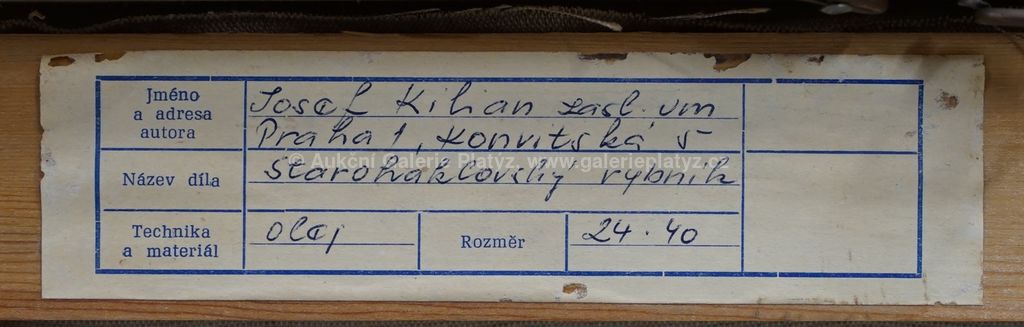 Jméno
a adresa
autora
Josef Kilian zasl. um
Praha 1, Konvitská 5
© Aukční Galerie Platýz, www.galerieplatyz.cz
Název díla
Starohaklovský rybník
Technika
a materiál
olej
Rozměr
24 · 40